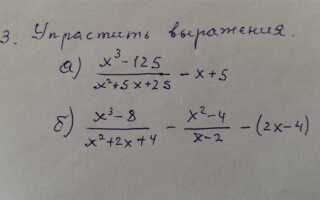 3. Упрастить выражения.
а) (x³-125)/(x²+5x+25) - x+5
б) (x³-8)/(x²+2x+4) - (x²-4)/(x-2) - (2x-4)